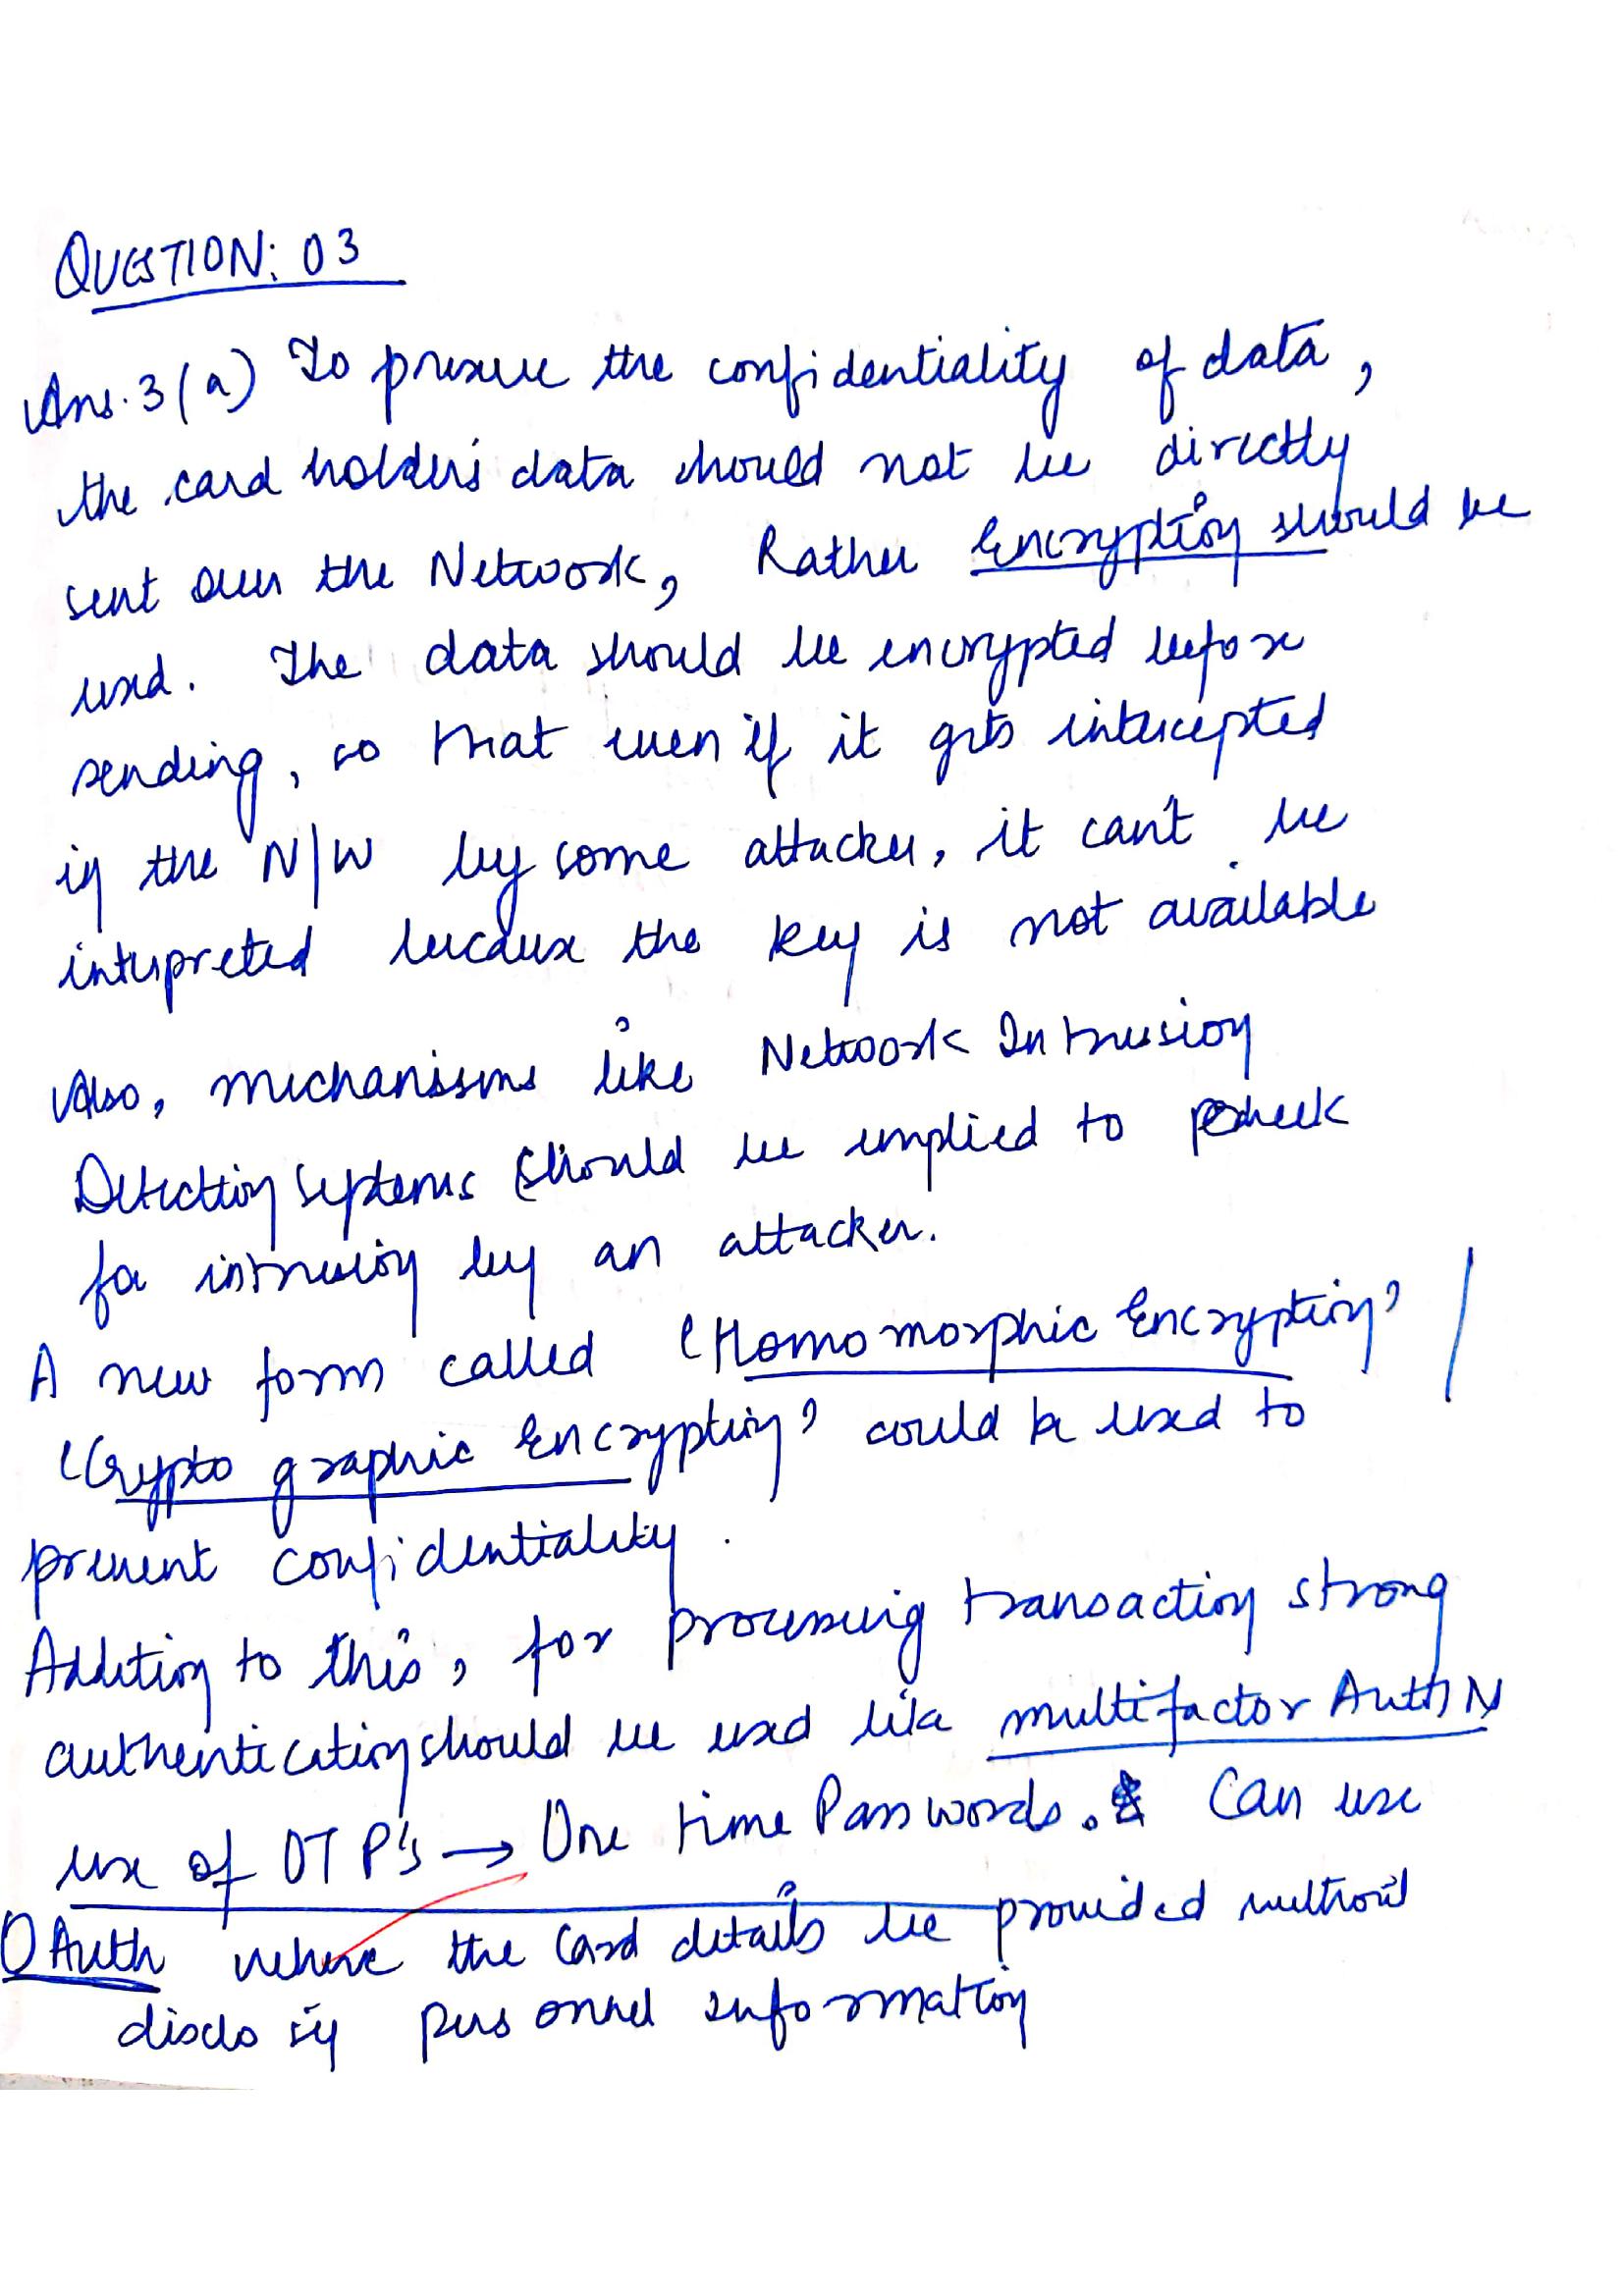 QUESTION: 03
Ans. 3 (a) To preserve the confidentiality of data,
the card holder's data should not be directly
sent over the Network, Rather Encryption should be
used. The data should be encrypted before
sending, so that even if it gets intercepted
in the N/W by some attacker, it can't be
interpreted because the key is not available
Also, mechanisms like Network Intrusion
Detection systems should be implied to check
for intrusion by an attacker.
A new form called 'Homomorphic Encryption' /
'Cryptographic Encryption' could be used to
prevent confidentiality.
Addition to this, for processing transaction strong
authentication should be used like multifactor AuthN
use of OTP's → One time Passwords. Can use
OAuth where the card details be provided without
disclosing personnel information